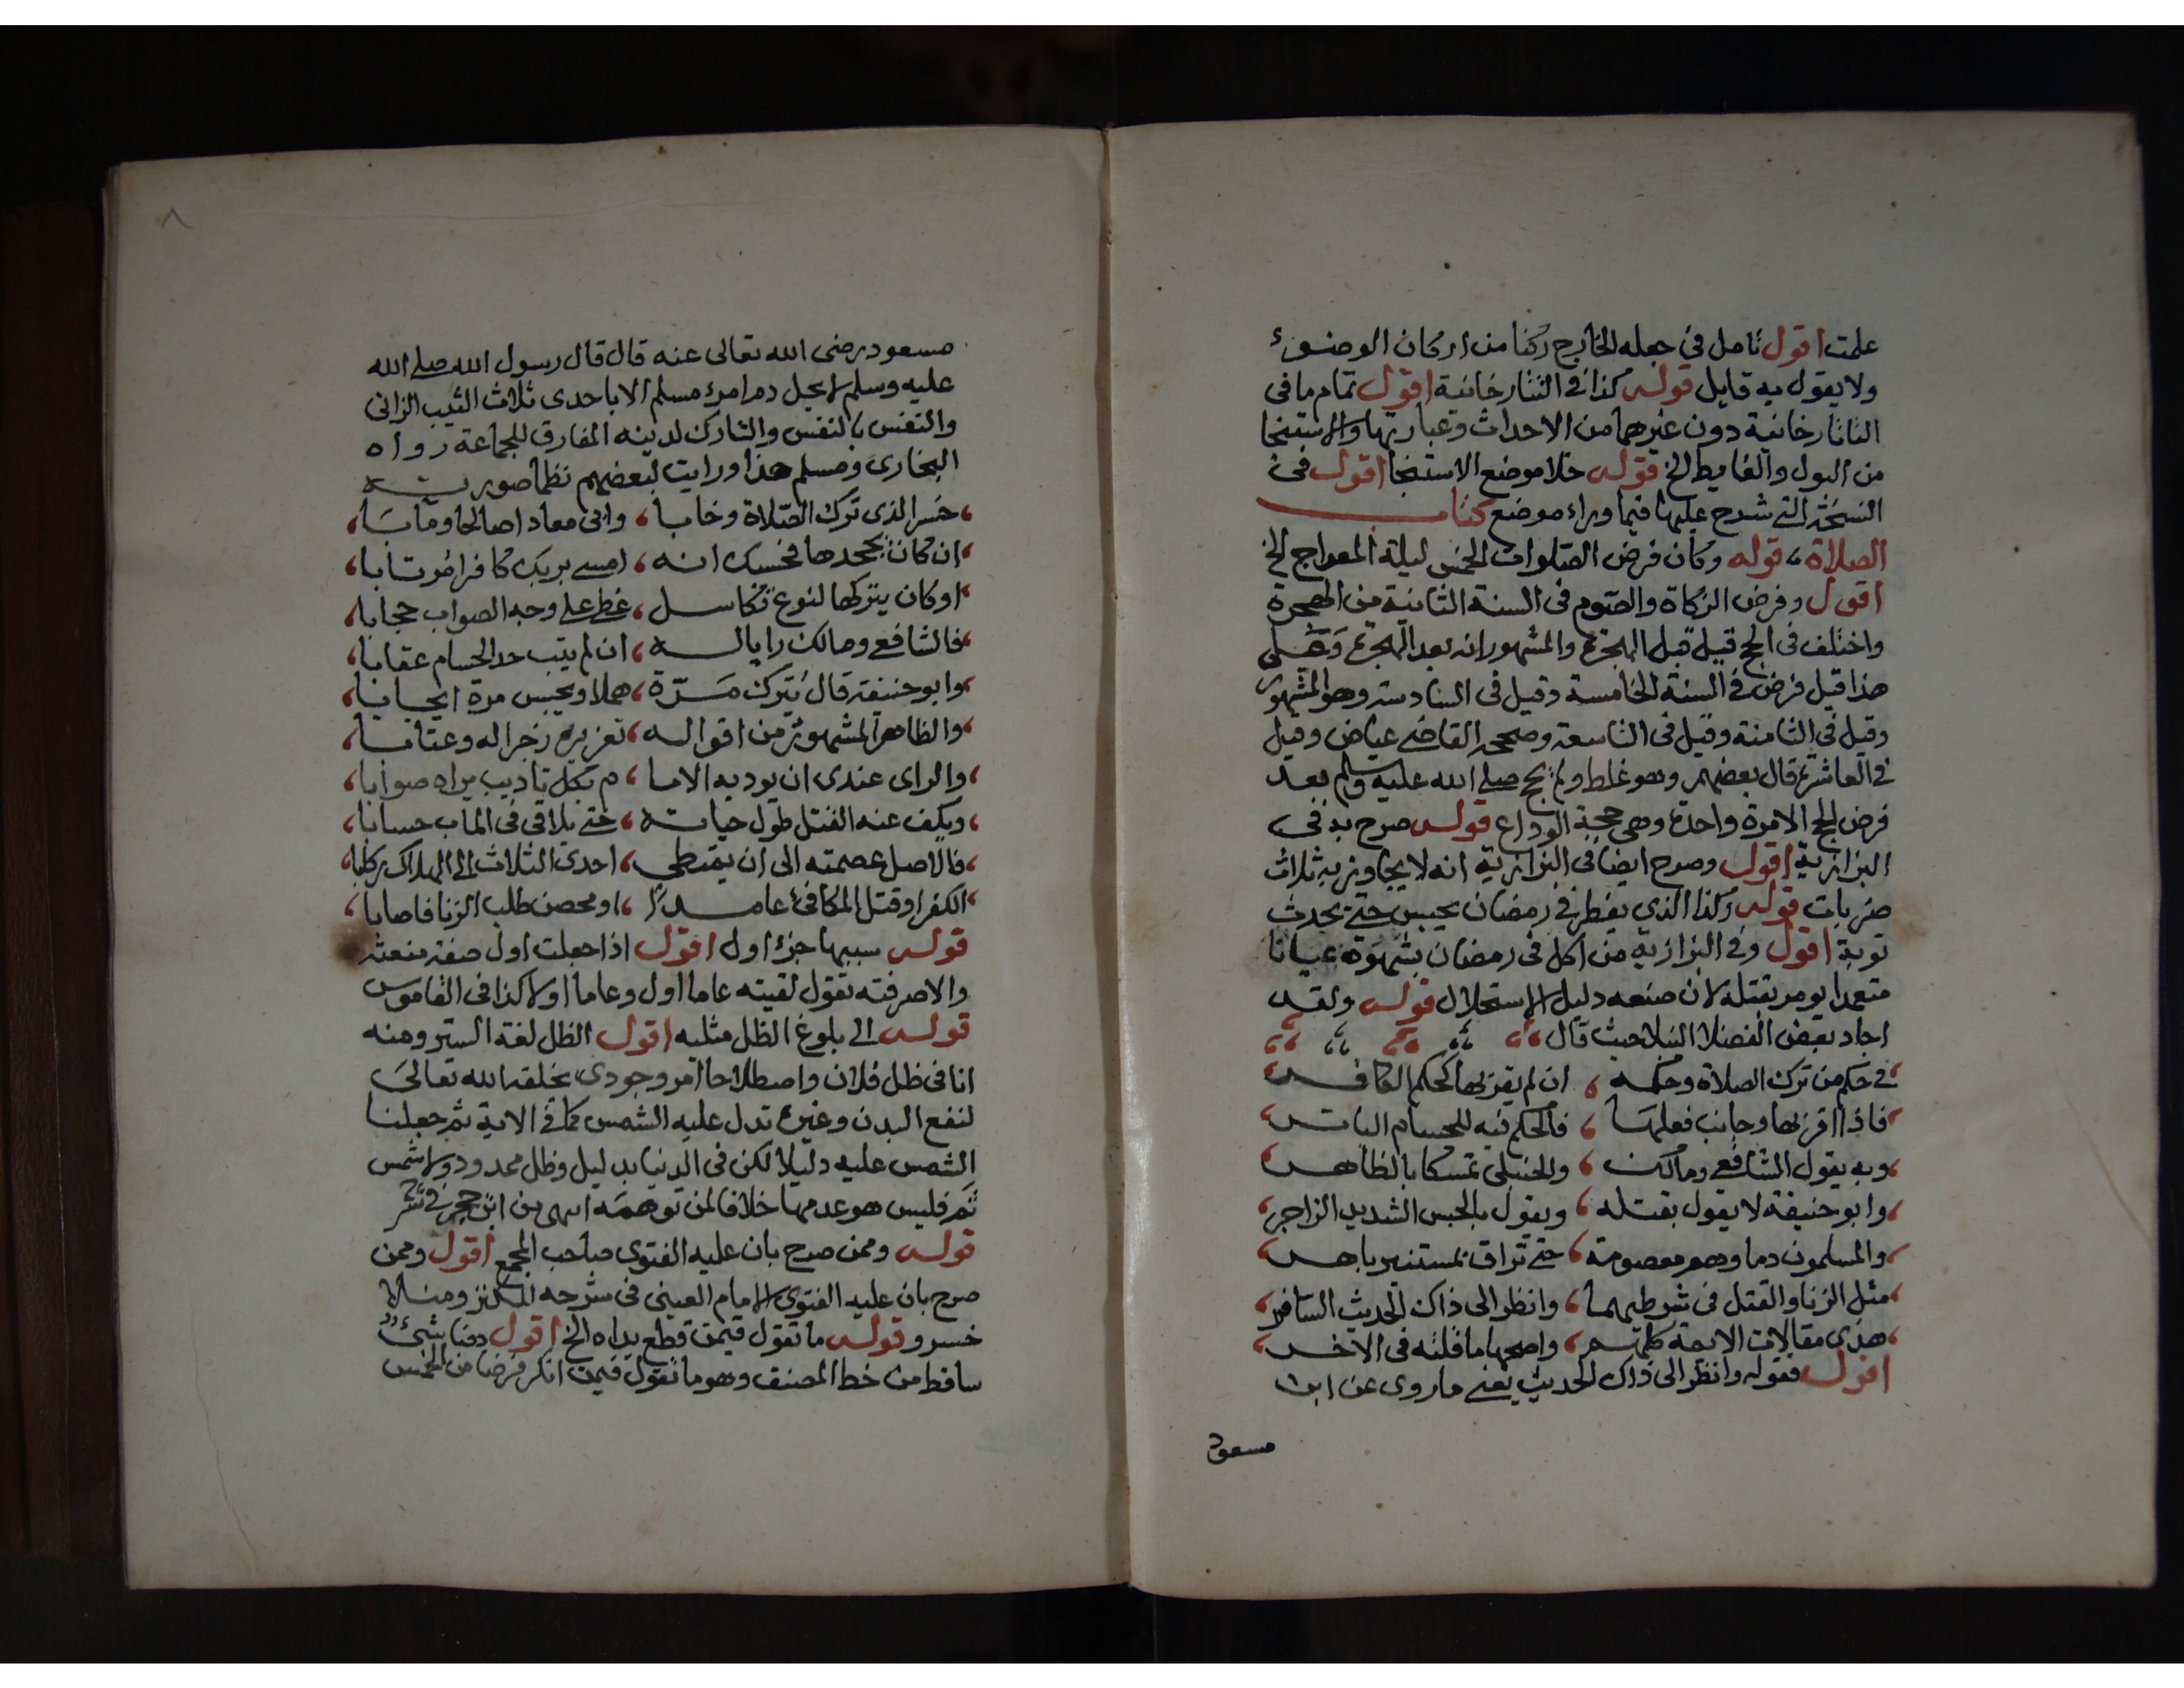 علمت اقول تامل في جعله الخارج ركنا من اركان الوضوء
ولا يقول به قايل قوله كذا في التتارخانية اقول تمام ما في
التاتارخانية دون غيرهما من الاحداث وعبارتها والاستنجا
من البول والغايط الخ قوله خلا موضع الاستنجا اقول في
النسخة التي شرح عليها فيما وراء موضع كتاب
الصلاة، قوله وكان فرض الصلوات الخمس ليلة المعراج الخ
اقول وفرض الزكاة والصوم في السنة الثانية من الهجرة
واختلف في الحج قيل قبل الهجرة والمشهور انه بعد الهجرة وعلى
هذا قيل فرض في السنة الخامسة وقيل في السادسة وهو المشهور
وقيل في الثامنة وقيل في التاسعة وصححه القاضي عياض وقيل
في العاشرة قال بعضهم وهو غلط ولم يحج صلى الله عليه وسلم بعد
فرض الحج الا مرة واحدة وهي حجة الوداع قوله صرح به في
البزازية اقول وصرح ايضا في البزازية انه لا يجاوز به ثلاث
ضربات قوله وكذا الذي يفطر في رمضان يحبس حتى يحدث
توبة اقول وفي البزازية من اكل في رمضان بشهوة عيانا
متعمدا يومر بقتله لان صنعه دليل الاستحلال قوله ولقد
اجاد بعض الفضلا النبلا حيث قال
في حكم من ترك الصلاة وحكمه ، ان لم يقر بها كحكم الكافر
فاذا اقر بها وجانب فعلها ، فالحكم فيه للحسام الباتر
وبه يقول الشافعي ومالك ، والحنبلي تمسكا بالظاهر
وابو حنيفة لا يقول بقتله ، ويقول بالحبس الشديد الزاجر
والمسلمون دماوهم معصومة ، حتى تراق بمستنير باهر
مثل الزنا والقتل في شرطيهما ، وانظر الى ذاك الحديث السافر
هذي مقالات الايمة كلهم ، واصحها ما قلته في الاخر
اقول فقوله وانظر الى ذاك الحديث يعني ما روى عن ابن
مسعود
٨
مسعود رضى الله تعالى عنه قال قال رسول الله صلى الله
عليه وسلم لا يحل دم امرء مسلم الا باحدى ثلاث الثيب الزاني
والنفس بالنفس والتارك لدينه المفارق للجماعة رواه
البخارى ومسلم هذا ورايت لبعضهم نظما صورته
، خسر الذي ترك الصلاة وخابا ، وابى معادا صالحا ومآبا ،
، ان كان يجحدها فحسبك انه ، امسى بربك كافرا مرتابا ،
، او كان يتركها لنوع تكاسل ، غطى على وجه الصواب حجابا ،
، فالشافعي ومالك رايا له ، ان لم يتب حد الحسام عقابا ،
، وابو حنيفة قال يترك مرة ، هملا ويحبس مرة ايجابا ،
، والظاهر المشهور من اقواله ، تعزيره زجرا له وعقابا ،
، والراى عندى ان يودبه الاما ، م بكل تاديب يراه صوابا ،
، ويكف عنه القتل طول حياته ، حتى يلاقي في الماب حسابا ،
، فالاصل عصمته الى ان يمتطي ، احدى الثلاث الى الهلاك ركابا ،
، الكفر او قتل المكافئ عامدا ، او محصن طلب الزنا فاصابا ،
قوله سببها جزء اول اقول اذا جعلت اول صفة منعته
والا صرفته تقول لقيته عاما اول وعاما اولا كذا في القاموس
قوله الى بلوغ الظل مثليه اقول الظل لغة الستر ومنه
انا في ظل فلان واصطلاحا امر وجودى يخلقه الله تعالى
لنفع البدن وغيره تدل عليه الشمس كما في الاية ثم جعلنا
الشمس عليه دليلا لكن في الدنيا بدليل وظل ممدود ولا شمس
ثم فليس هو عدمها خلافا لمن توهمه انتهى من ابن حجر في
قوله وممن صرح بان عليه الفتوى صاحب المجمع اقول وممن
صرح بان عليه الفتوى الامام العيني في شرحه للكنز ومنلا
خسرو قوله ما تقول فيمن قطع يداه الخ اقول دمنا شئ
ساقط من خط المصنف وهو ما تقول فيمن انكر فرضا من الخمس